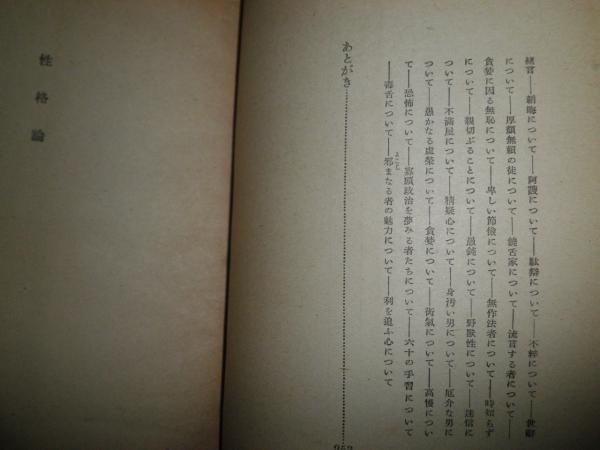 緒言――韜晦について――阿諛について――駄辯について――不粹について――世辭
について――厚顏無賴の徒について――饒舌家について――流言する者について――
貪婪に因る無恥について――卑しい節儉について――無作法者について――時知らず
について――親切ぶることについて――愚鈍について――野獸性について――迷信に
ついて――不滿屋について――猜疑心について――身汚い男について――厄介な男に
ついて――愚かなる虛榮について――貪婪について――衒氣について――高慢につい
て――恐怖について――寡頭政治を夢みる者たちについて――六十の手習について
――毒舌について――邪まなる者の魅力について――利を追ふ心について
よこしま
あとがき
性格論